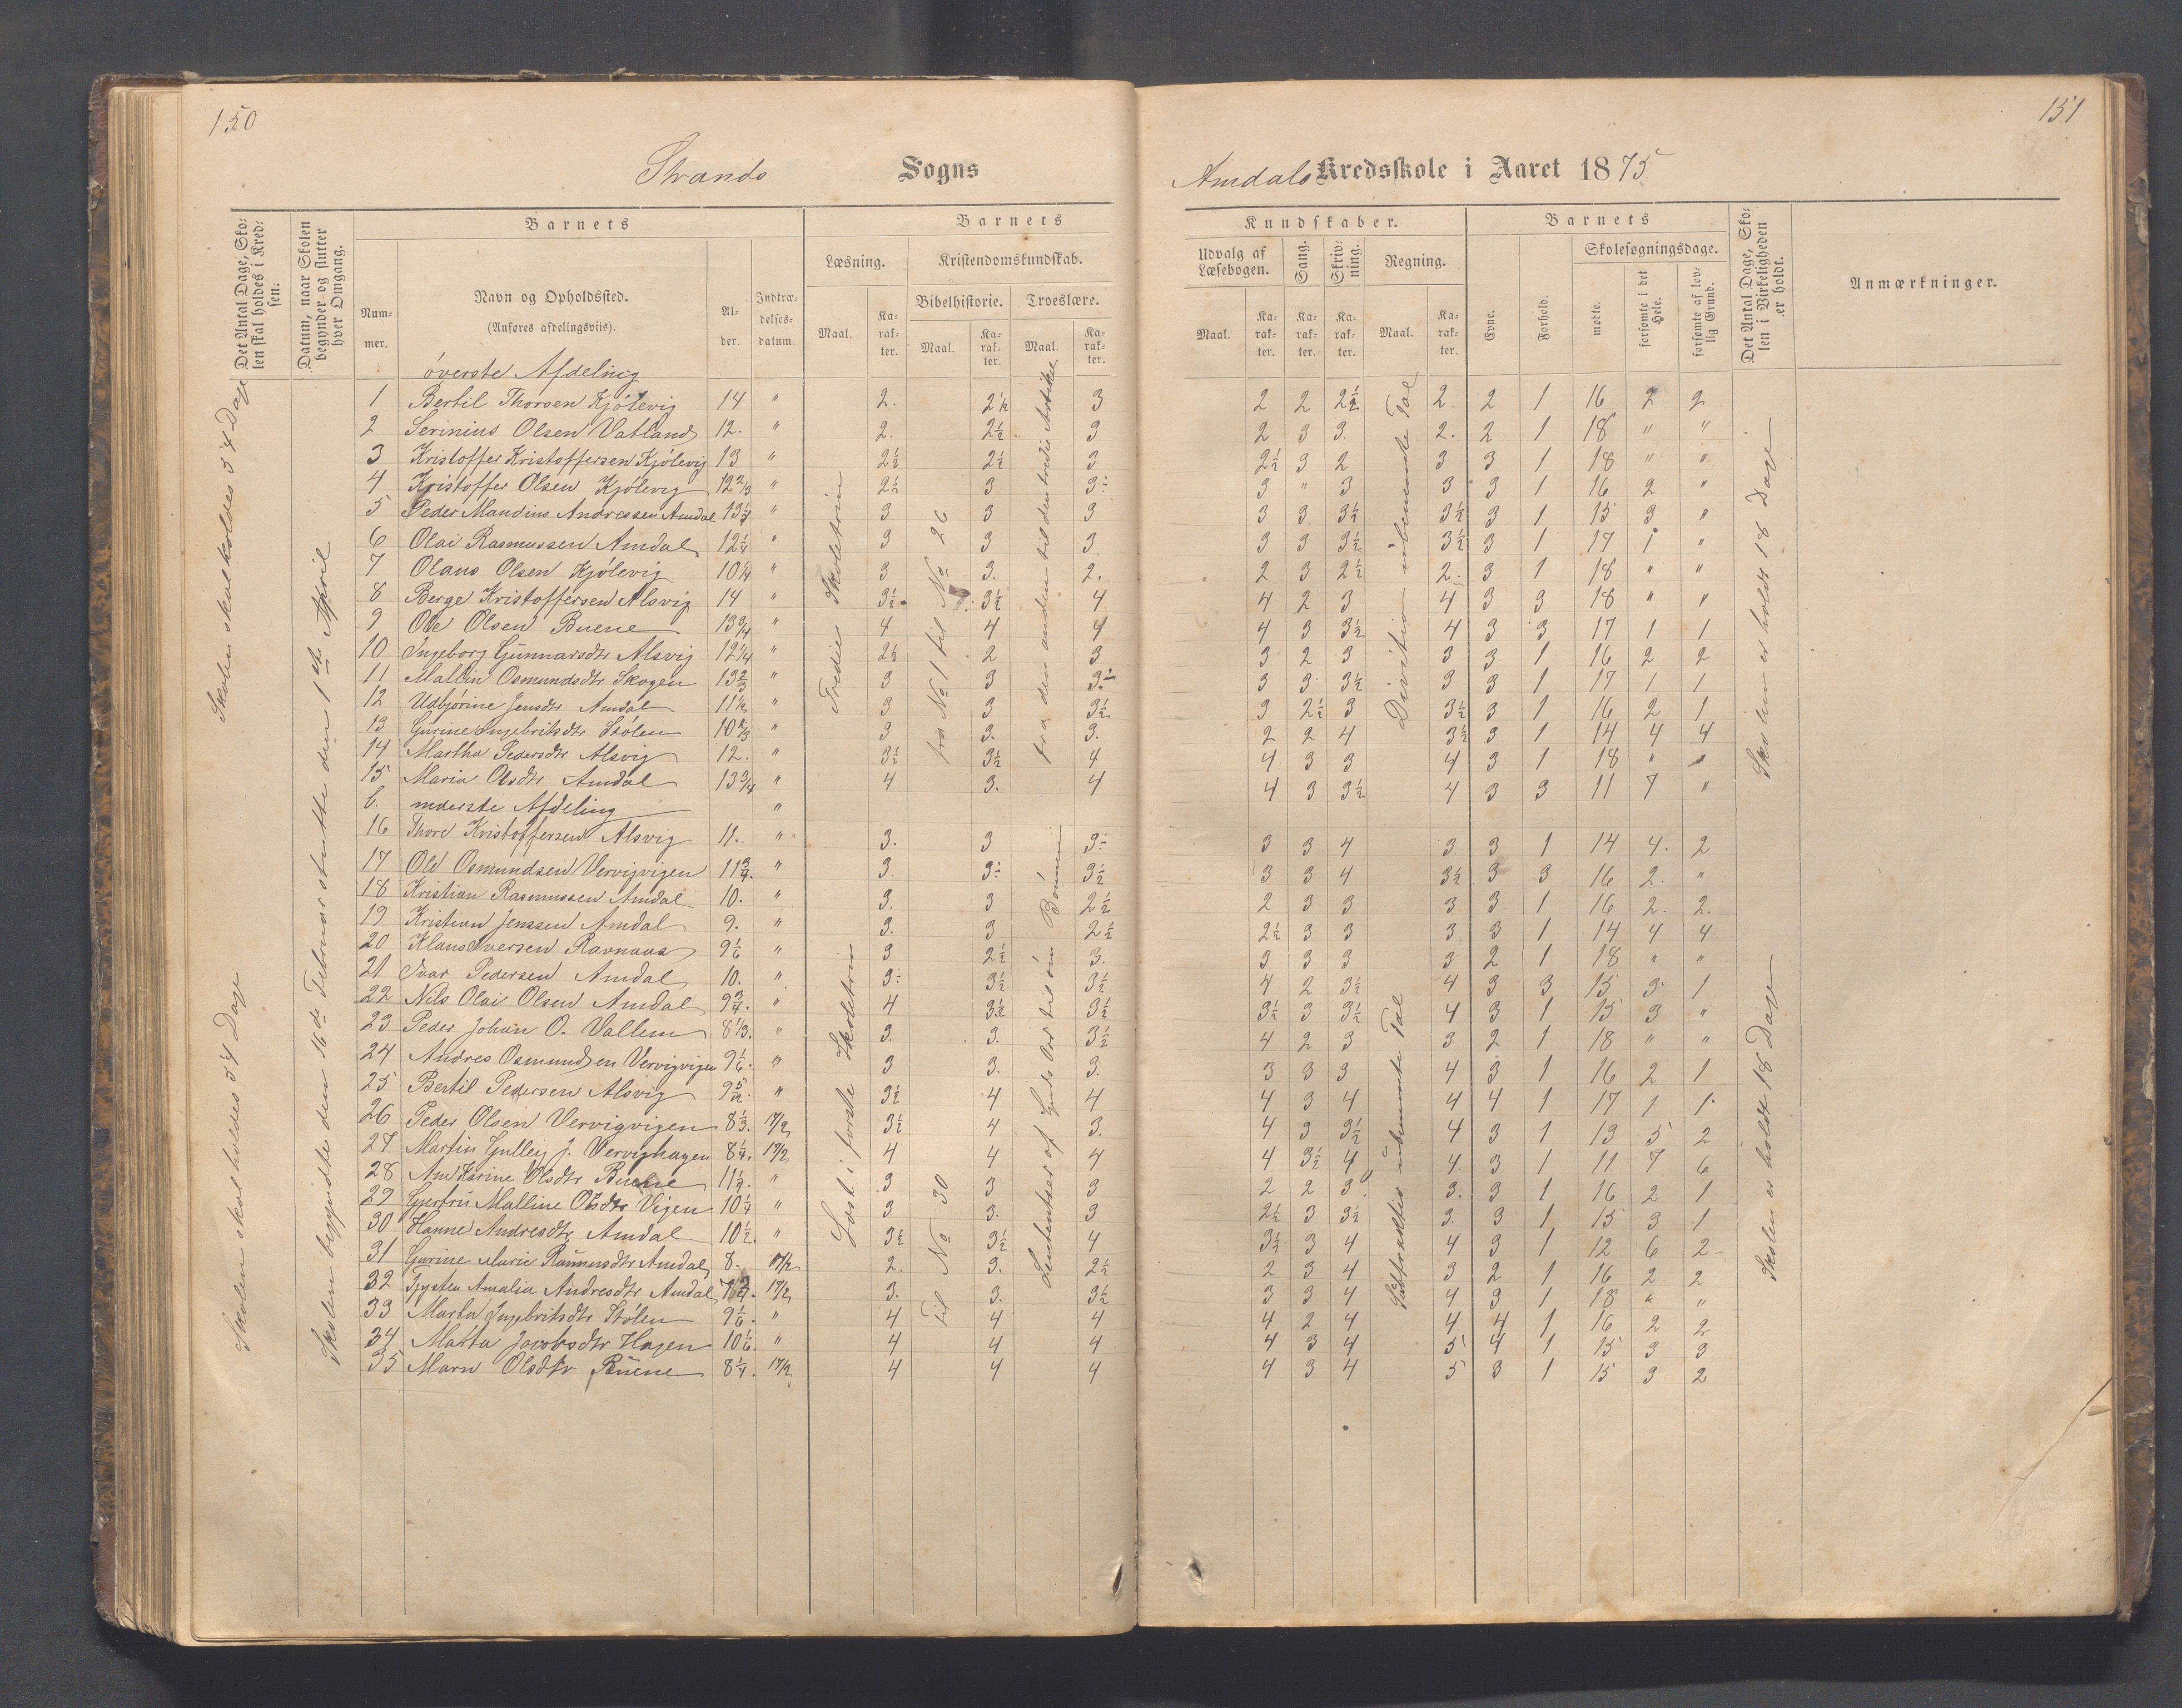 150
151
Strands Sogns
Amdals Kredsskole i Aaret 1875
Det Antal Dage, Skolen skal holdes i Kredsen.
Datum, naar Skolen begynder og slutter hver Omgang.
Barnets
Nummer.
Navn og Opholdssted.
(Anføres afdelingsviis).
Alder.
Indtrædelsesdatum.
Barnets
Læsning.
Kristendomskundskab.
Bibelhistorie. Troeslære.
Maal. Karakter. Maal. Karakter. Maal. Karakter.
Kundskaber.
Udvalg af Læsebogen. Sang. Skrivning. Regning.
Maal. Karakter. Karakter. Karakter. Maal. Karakter.
Barnets
Evne. Forhold. Skolesøgningsdage.
mødte. forsømte i det Hele. forsømte af lovlig Grund.
Det Antal Dage, Skolen i Virkeligheden er holdt.
Anmærkninger.
Skolen skal holdes 54 Dage
Skolen skal holdes 54 Dage
Skolen begyndte den 16de Februar sluttede den 1ste April
Tredie Skoletrin
fra No 1 til No 26
fra den anden til den tredie Artikel
Division ubenævnte Tal
Skolen er holdt 18 Dage
øverste Afdeling
1 Bertil Thorsen Kjölevig 14 " 2. 2½ 3 2 2 2½ 2. 2 1 16 2 2
2 Serinius Olsen Vatland 12. " 2. 2½ 3 2 3 3. 2. 2 1 18 " "
3 Kristoffer Kristoffersen Kjölevig 13 " 2½ 2½ 3 2½ 3 2 3 3 1 18 " "
4 Kristoffer Olsen Kjölevig 12 2/3 " 2½ 3 3÷ 3 " 3 3 3 1 16 2 "
5 Peder Mandius Andressen Amdal 13¼ " 3 3 3 3 3 3½ 3½ 3 1 15 3 "
6 Olai Rasmussen Amdal 12¼ " 3 3 3 3 3 3½ 3½ 3 1 17 1 "
7 Olaus Olsen Kjölevig 10¼ " 3 3. 2. 2 3 2½ 2. 3 1 18 " "
8 Berge Kristoffersen Alsvig 14 " 3½ 3½ 4 4 2 3 4 3 3 18 " "
9 Ole Olsen Buene 13¾ " 4 4 4 4 3 3½ 4 3 3 17 1 1
10 Ingeborg Gunnarsdtr Alsvig 12¼ " 2½ 2 3 3 2 3 3 3 1 16 2 2
11 Mallin Osmundsdtr Skogen 13 2/3 " 3 3 3÷ 3 3 3½ 3 3 1 17 1 1
12 Udbjörine Jensdtr Amdal 11½ " 3 3 3½ 3 2½ 3 3½ 3 1 16 2 1
13 Gurine Ingebritsdtr Stölen 10 2/3 " 3 3. 3. 2 2 4 3½ 3 1 14 4 4
14 Martha Pedersdtr Alsvig 12. " 3½ 3½ 4 4 3 3 4 3 1 18 " "
15 Maria Olsdtr Amdal 13¾ " 4 3. 4 4 3 3½ 4 3 3 11 7 "
b. nederste Afdeling "
16 Thore Kristoffersen Alsvig 11. " 3. 3 3÷ 3 3 4 3 3 1 14 4. 2
17 Ole Osmundsen Vervigvigen 11¾. " 3. 3÷ 3½ 3 3 4 3½ 3 3 16 2. "
18 Kristian Rasmussen Amdal 10. " 3. 3 2½ 2 3 3 3 3 1 16 2. 2.
19 Kristian Jenssen Amdal 9. " 3. 3 2½ 2½ 3 3 3 3 1 14 4 4
20 Klaus Iversen Ravnaas 9 1/6 " 3 2½ 3. 3 3 3 3 2 1 18 " "
21 Ivar Pedersen Amdal 10. " 3÷ 3½ 3½ 4 2 3½ 4 3 3 15 3 1
22 Nils Olai Olsen Amdal 9¾. " 4 3½ 3½ 3½ 3 3½ 4 3 1 15 3 "
23 Peder Johan O. Vallem 8 1/3. " 3. 3. 3½ 4 2 3 3 2 1 18 " "
24 Andres Osmundsen Vervigvigen 9 1/6. " 3 3. 3. 3 3 3 4 3 1 16 2 1
25 Bertil Pedersen Alsvig 9 5/12. " 3½ 4 4 4 3 4 4 4 1 17 1 1
26 Peder Olsen Vervigvigen 8 1/3. 17/2 3½ 4 3. 4 3 3½ 4 3 1 13 5 2
27 Martin Gulleig J. Vervighagen 8¼. 17/2 4 4 4 4 3½ 4 4. 3 1 11 7 6
28 Ane Karine Olsdtr Buene 11¼. " 3 3 3 2 2 3 3. 3 1 16 2 1
29 Gjertrü Malline Olsdtr Vigen 10¼ " 3 3. 3 2½ 3 3½ 3. 3 1 15 3 1
30 Hanne Andresdtr Amdal 10½. " 3½ 3½ 4 3½ 3 4 4 3 1 12 6 2
31 Gurine Marie Rasmusdtr Amdal 8. 17/2 2. 3. 2½ 2 3 4 3 2 1 16 2 2
32 Amalia Andresdtr Amdal 17/2 3. 3. 3½ 3 3 4 4 3 1 18 " "
33 Marta Ingebritsdtr Stölen 9 1/6. " 4 4 4 4 2 4 4 4 1 16 2 2
34 Marta Jacobsdtr Hagen 10 1/6. " 4 4 4 4 3 4 5 4 1 15 3 3
35 Marn Olsdtr Buene 8¼. 17/2 4 4 4 4 3 4 5 3 1 15 3 2
Læst i förste Skoletrin
til No 30
af Guds Ord til om Bönnen
Subtraktion ubenævnte Tal
Skolen er holdt 18 Dage